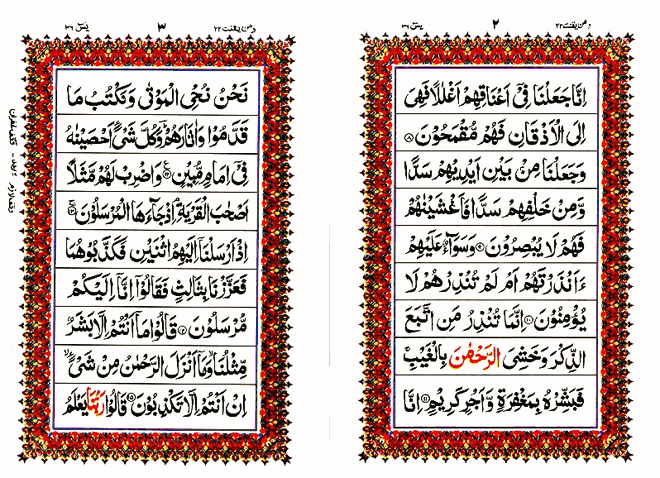 ومن يقنت ٢٢
٢
يٰسٓ ٣٦
اِنَّا جَعَلْنَا فِیْۤ اَعْنَاقِهِمْ اَغْلٰلًا فَهِیَ
اِلَی الْاَذْقَانِ فَهُمْ مُّقْمَحُوْنَ ۝۸
وَجَعَلْنَا مِنْۢ بَیْنِ اَیْدِیْهِمْ سَدًّا
وَّمِنْ خَلْفِهِمْ سَدًّا فَاَغْشَیْنٰهُمْ
فَهُمْ لَا یُبْصِرُوْنَ ۝۹ وَسَوَآءٌ عَلَیْهِمْ
ءَاَنْذَرْتَهُمْ اَمْ لَمْ تُنْذِرْهُمْ لَا
یُؤْمِنُوْنَ ۝۱۰ اِنَّمَا تُنْذِرُ مَنِ اتَّبَعَ
الذِّكْرَ وَخَشِیَ الرَّحْمٰنَ بِالْغَیْبِ ۚ
فَبَشِّرْهُ بِمَغْفِرَةٍ وَّاَجْرٍ كَرِیْمٍ ۝۱۱ اِنَّا
ومن يقنت ٢٢
٣
يٰسٓ ٣٦
نَحْنُ نُحْیِ الْمَوْتٰی وَنَكْتُبُ مَا
قَدَّمُوْا وَاٰثَارَهُمْ ۣؕ وَكُلَّ شَیْءٍ اَحْصَیْنٰهُ
فِیْۤ اِمَامٍ مُّبِیْنٍ ۝۱۲ وَاضْرِبْ لَهُمْ مَّثَلًا
اَصْحٰبَ الْقَرْیَةِ ۘ اِذْ جَآءَهَا الْمُرْسَلُوْنَ ۝۱۳
اِذْ اَرْسَلْنَاۤ اِلَیْهِمُ اثْنَیْنِ فَكَذَّبُوْهُمَا
فَعَزَّزْنَا بِثَالِثٍ فَقَالُوْۤا اِنَّاۤ اِلَیْكُمْ
مُّرْسَلُوْنَ ۝۱۴ قَالُوْا مَاۤ اَنْتُمْ اِلَّا بَشَرٌ
مِّثْلُنَا ۙ وَمَاۤ اَنْزَلَ الرَّحْمٰنُ مِنْ شَیْءٍ ۙ
اِنْ اَنْتُمْ اِلَّا تَكْذِبُوْنَ ۝۱۵ قَالُوْا رَبُّنَا یَعْلَمُ